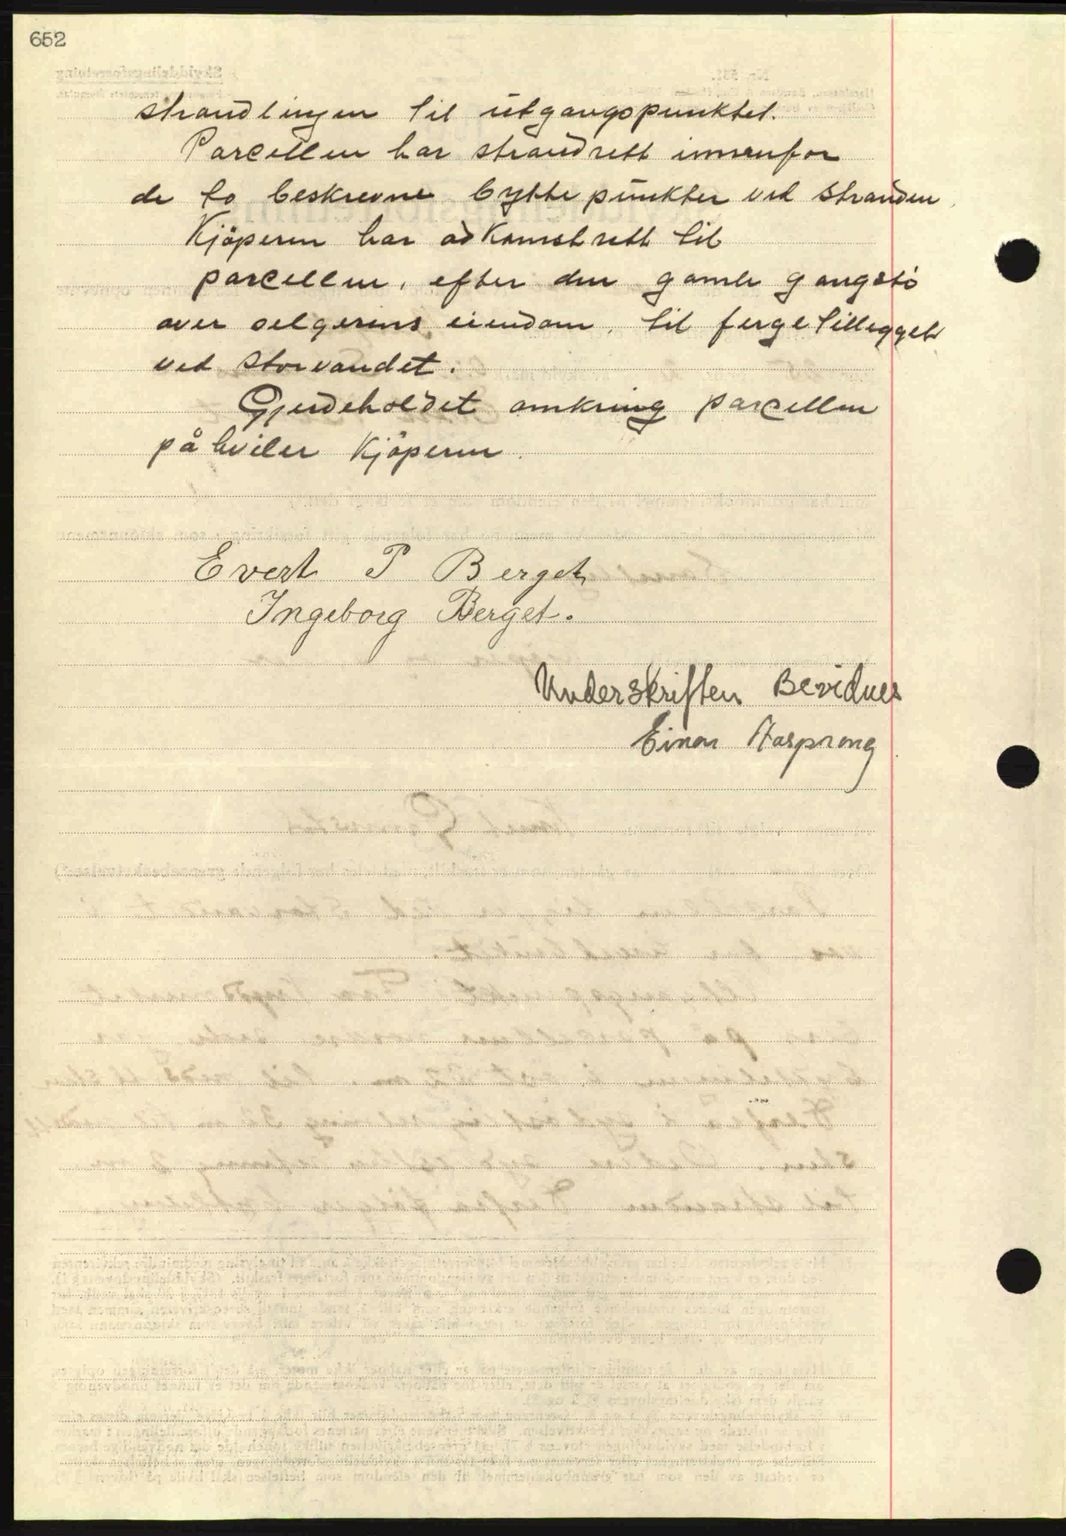 652
strandlinjen til utgangspunktet.
Parcellen har strandrett innenfor
de to beskrevne byttepunkter ved stranden.
Kjöperen har adkomstrett til
parcellen, efter den gamle gangsti
over selgerens eiendom, til fergetillegget
ved Storvandet.
Gjerdeholdet omkring parcellen
påhviler Kjöperen.
Evert P Berget
Ingeborg Berget.
Underskriften Bevidnes
Einar Aasprong